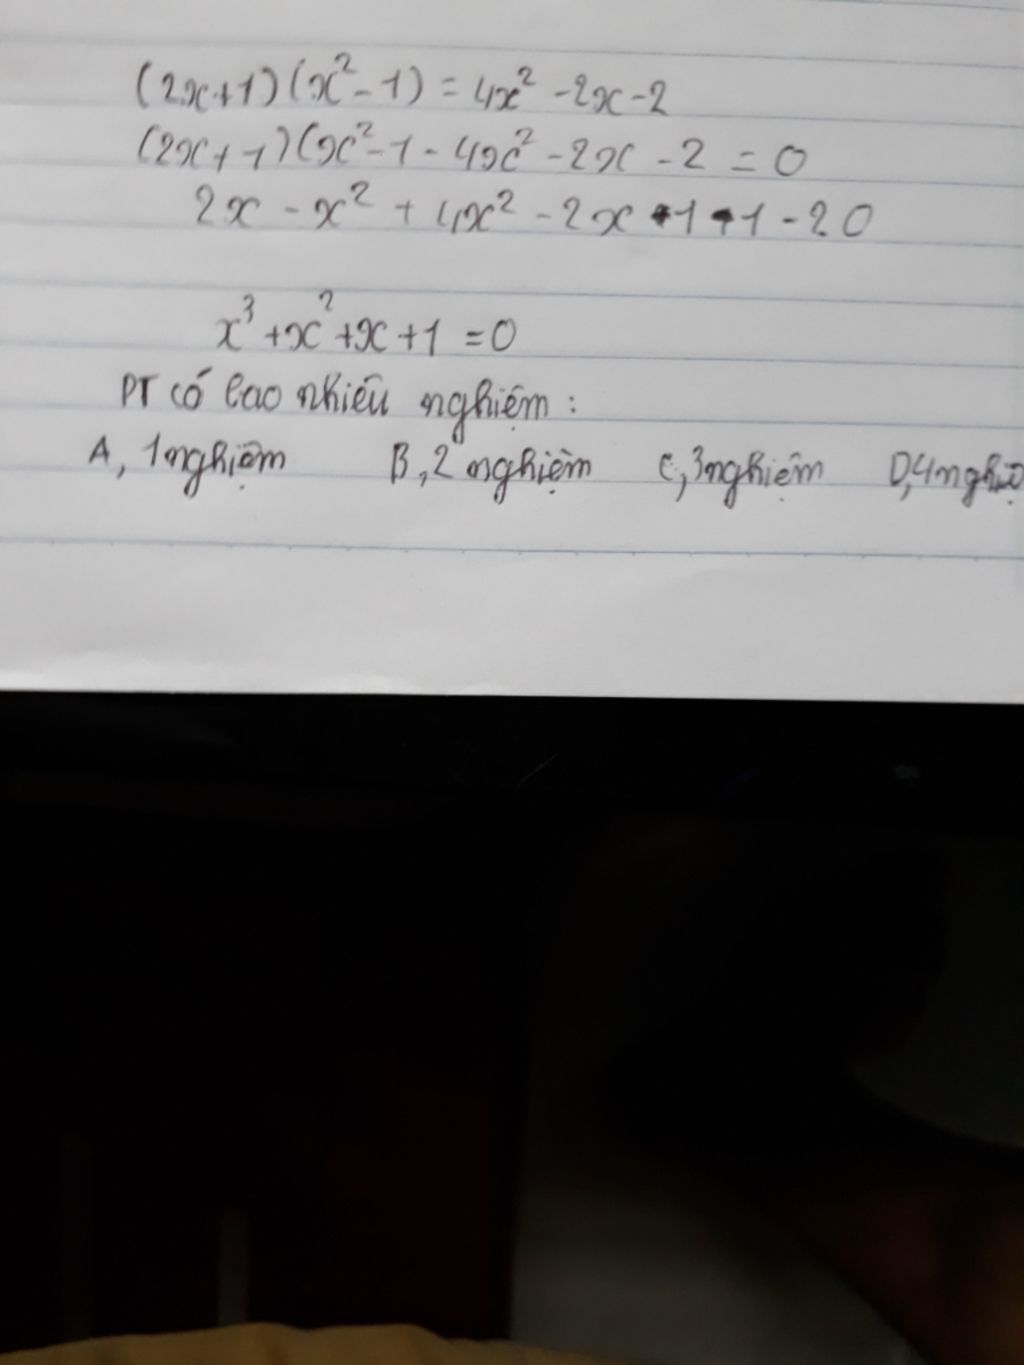 (2x+1)(x²-1) = 4x² -2x-2
(2x+1)(x²-1 - 4x² -2x -2 = 0
2x - x² + 4x² - 2x +1 +1 -20
x³+x²+x+1 =0
PT có bao nhiêu nghiệm :
A, 1 nghiệm B, 2 nghiệm C, 3 nghiệm D, 4 nghiệ